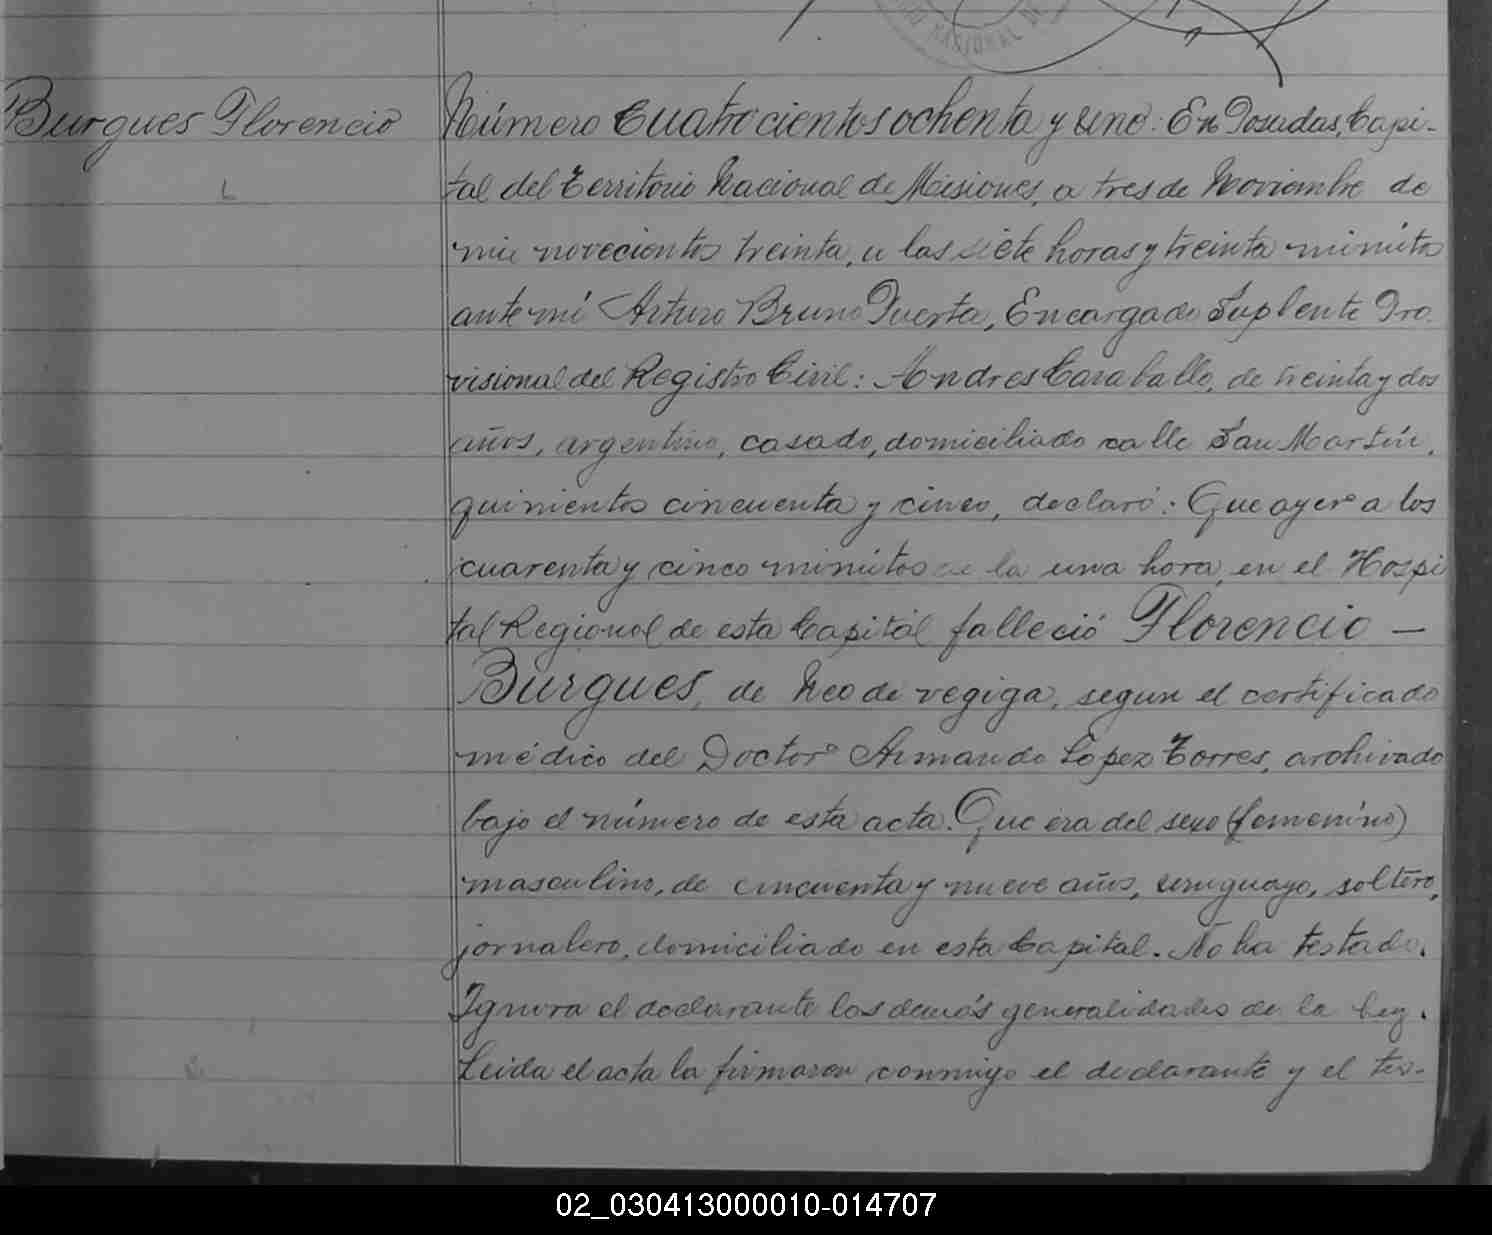 NAL DE
NACIONAL
Burgues Florencio
Número Cuatrocientos ochenta y uno: En Posadas, Capi-
tal del Territorio Nacional de Misiones, a tres de Noviembre de
mil novecientos treinta, a las siete horas y treinta minutos
ante mí Arturo Bruno Puerta, Encargado Suplente Pro
visional del Registro Civil: Andres Caraballo, de treinta y dos
años, argentino, casado, domiciliado calle San Martín,
quinientos cincuenta y cinco, declaró: Que ayer a los
cuarenta y cinco minutos de la una hora, en el Hospi
tal Regional de esta Capital falleció Florencio —
Burgues, de Neo de vegiga, segun el certificado
médico del Doctor Armando Lopez Torres, archivado
bajo el número de esta acta. Que era del sexo (femenino)
masculino, de cincuenta y nueve años, uruguayo, soltero,
jornalero, domiciliado en esta Capital. No ha testado.
Ignora el declarante las demás generalidades de la Ley.
Leida el acta la firmaron conmigo el declarante y el tes-
02_030413000010-014707